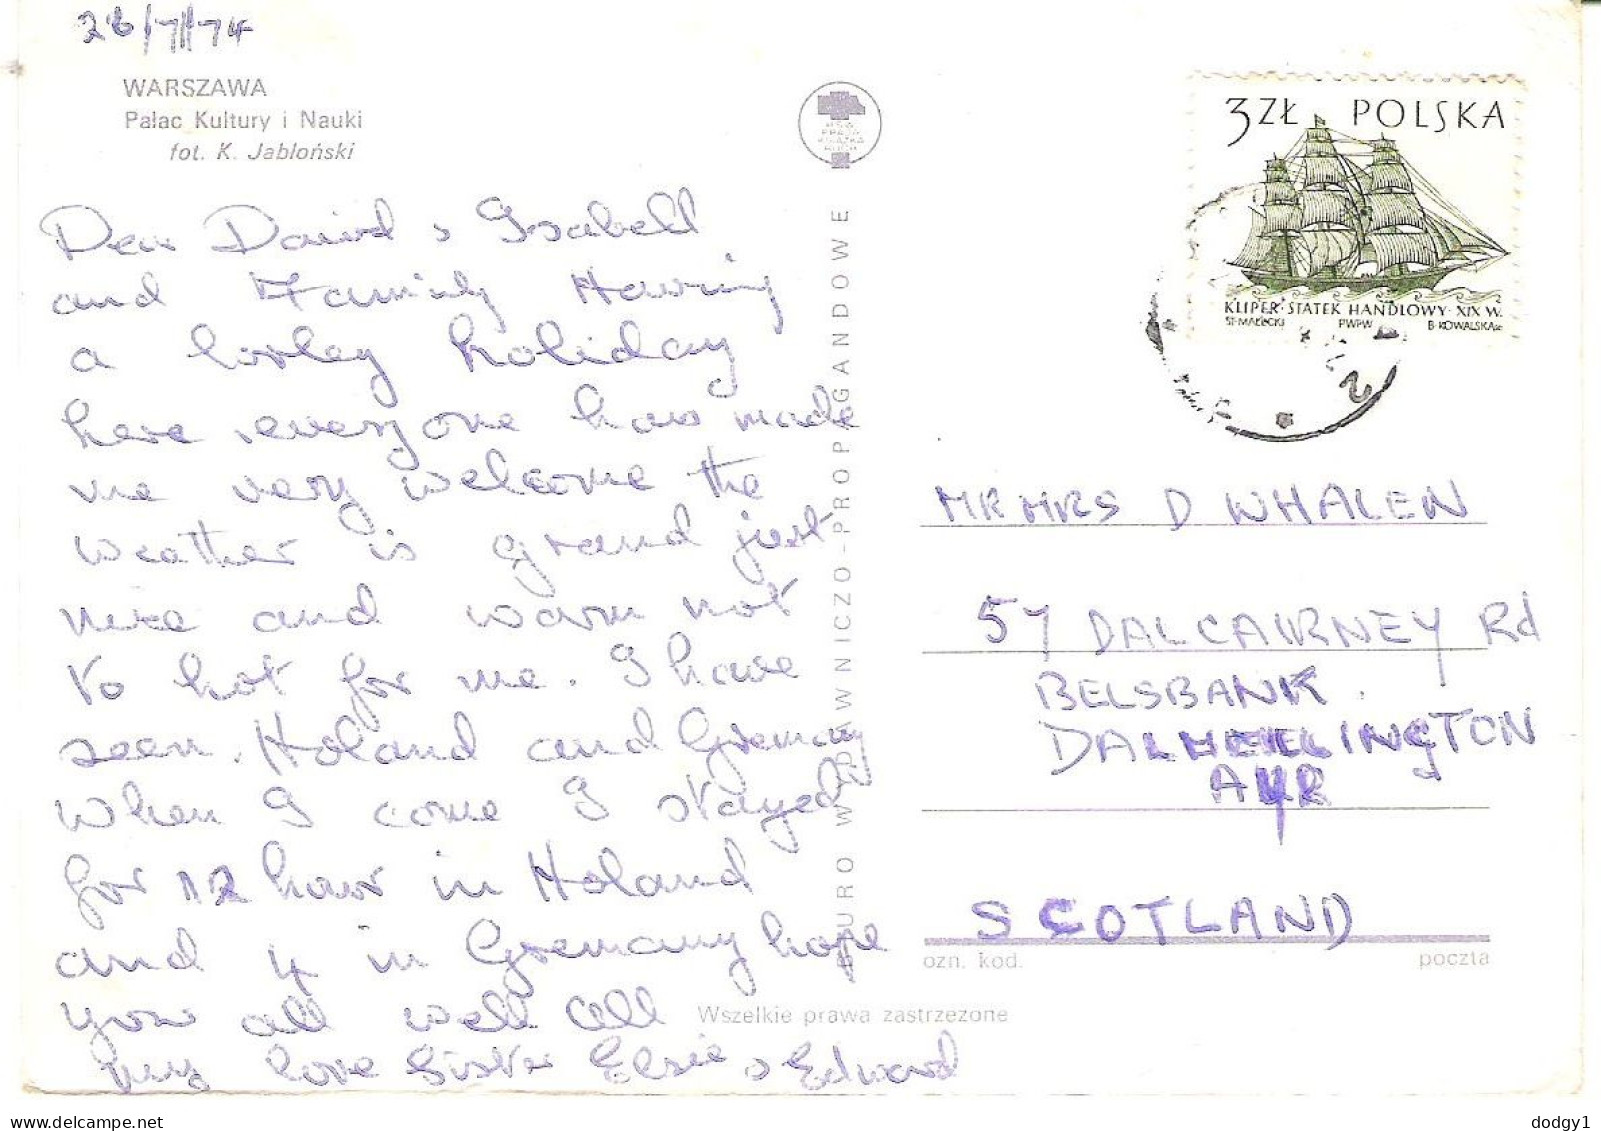 28/7/74
WARSZAWA
Pałac Kultury i Nauki
fot. K. Jabłoński
Dear David & Isabell
and Family Having
a lovley holiday
here everyone haw made
me very welcome the
weather is grand just
nice and warm not
to hot for me. I have
seen Holand and Gremany
When I come I stayed
for 12 hour in Holand
and 4 in Gremany hope
your all well all
my love Sister Elsie & Edward
BIURO WYDAWNICZO-PROPAGANDOWE
RSW
PRASA
KSIĄŻKA
RUCH
3 ZŁ POLSKA
KLIPER·STATEK HANDLOWY·XIX W.
ST·MAŁECKI PWPW B·KOWALSKA sc
MR MRS D WHALEN
57 DALCAIRNEY Rd
BELSBANK.
DALMELLINGTON
AYR
SCOTLAND
ozn. kod. poczta
Wszelkie prawa zastrzeżone
dodgy1
www.delcampe.net